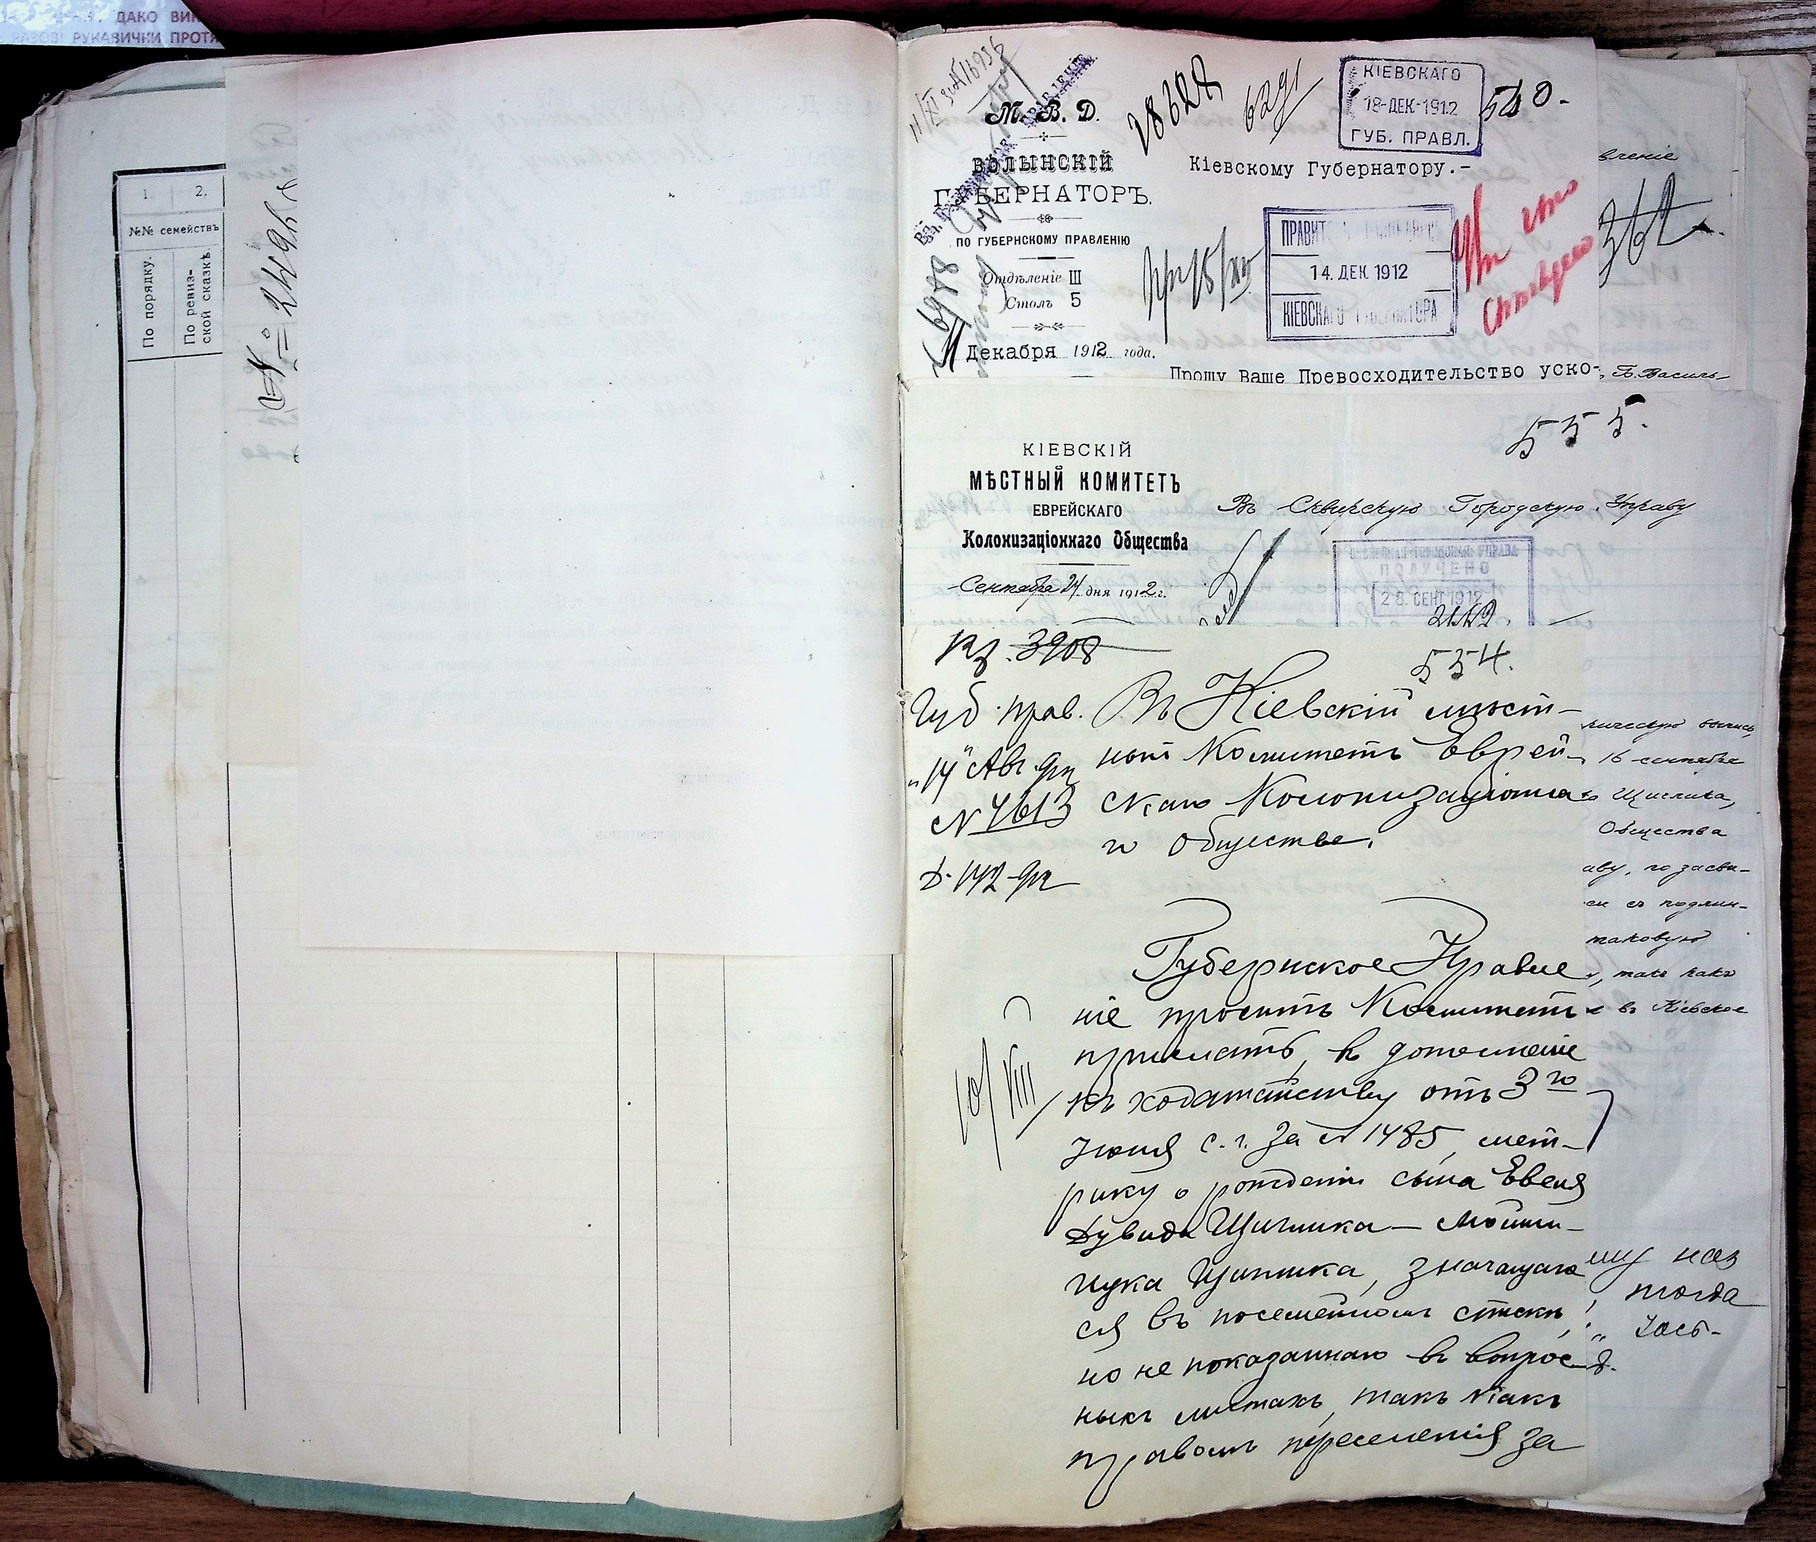 ДАКО ВИК
РАЗОВІ РУКАВИЧКИ ПРОТЯ
1.
2.
№№ семействъ
По порядку.
По ревиз-
ской сказкѣ
№=
М. В. Д.
ВОЛЫНСКІЙ
ГУБЕРНАТОРЪ.
ПО ГУБЕРНСКОМУ ПРАВЛЕНІЮ
Отдѣленіе III
Столъ 5
11 Декабря 1912 года.
6978
18628
6291
КІЕВСКАГО
18-ДЕК-1912
ГУБ. ПРАВЛ.
540.
Кіевскому Губернатору.-
14. ДЕК 1912
КІЕВСКАГО ГУБЕРНАТОРА
Прошу Ваше Превосходительство уско-
вленіе
362
Б. Василь-
555.
КІЕВСКІЙ
МѢСТНЫЙ КОМИТЕТЪ
ЕВРЕЙСКАГО
Колонизаціоннаго Общества
Сентября 24 дня 1912 г.
Въ Сквирскую Городскую Управу
ГОРОДСКАЯ УПРАВА
ПОЛУЧЕНО
26. СЕНТ 1912
Вз. 3908
554.
Губ. прав.
"14" Авг. 912
№ 4613
Д. 142-912
Въ Кіевскій мѣст-
ный Комитетъ Еврей-
скаго Колонизаціонна-
го Общества.
10/VIII
Губернское Правле
ніе проситъ Комитетъ
прислать, въ дополненіе
къ ходатайству отъ 3го
Іюня с. г. за № 1485, мет-
рику о рожденіи сына Евеля
Дувида Щиглика — Мошки-
Щиглика, значащаго
ся въ посемейномъ спискѣ,
но не показаннаго въ вопрос-
ныхъ листахъ, такъ какъ
правомъ переселенія за
16 сентября
Щиглика,
Общества
аву, по засви-
си съ подлин-
таковую
, такъ какъ
въ Кіевское
тогда